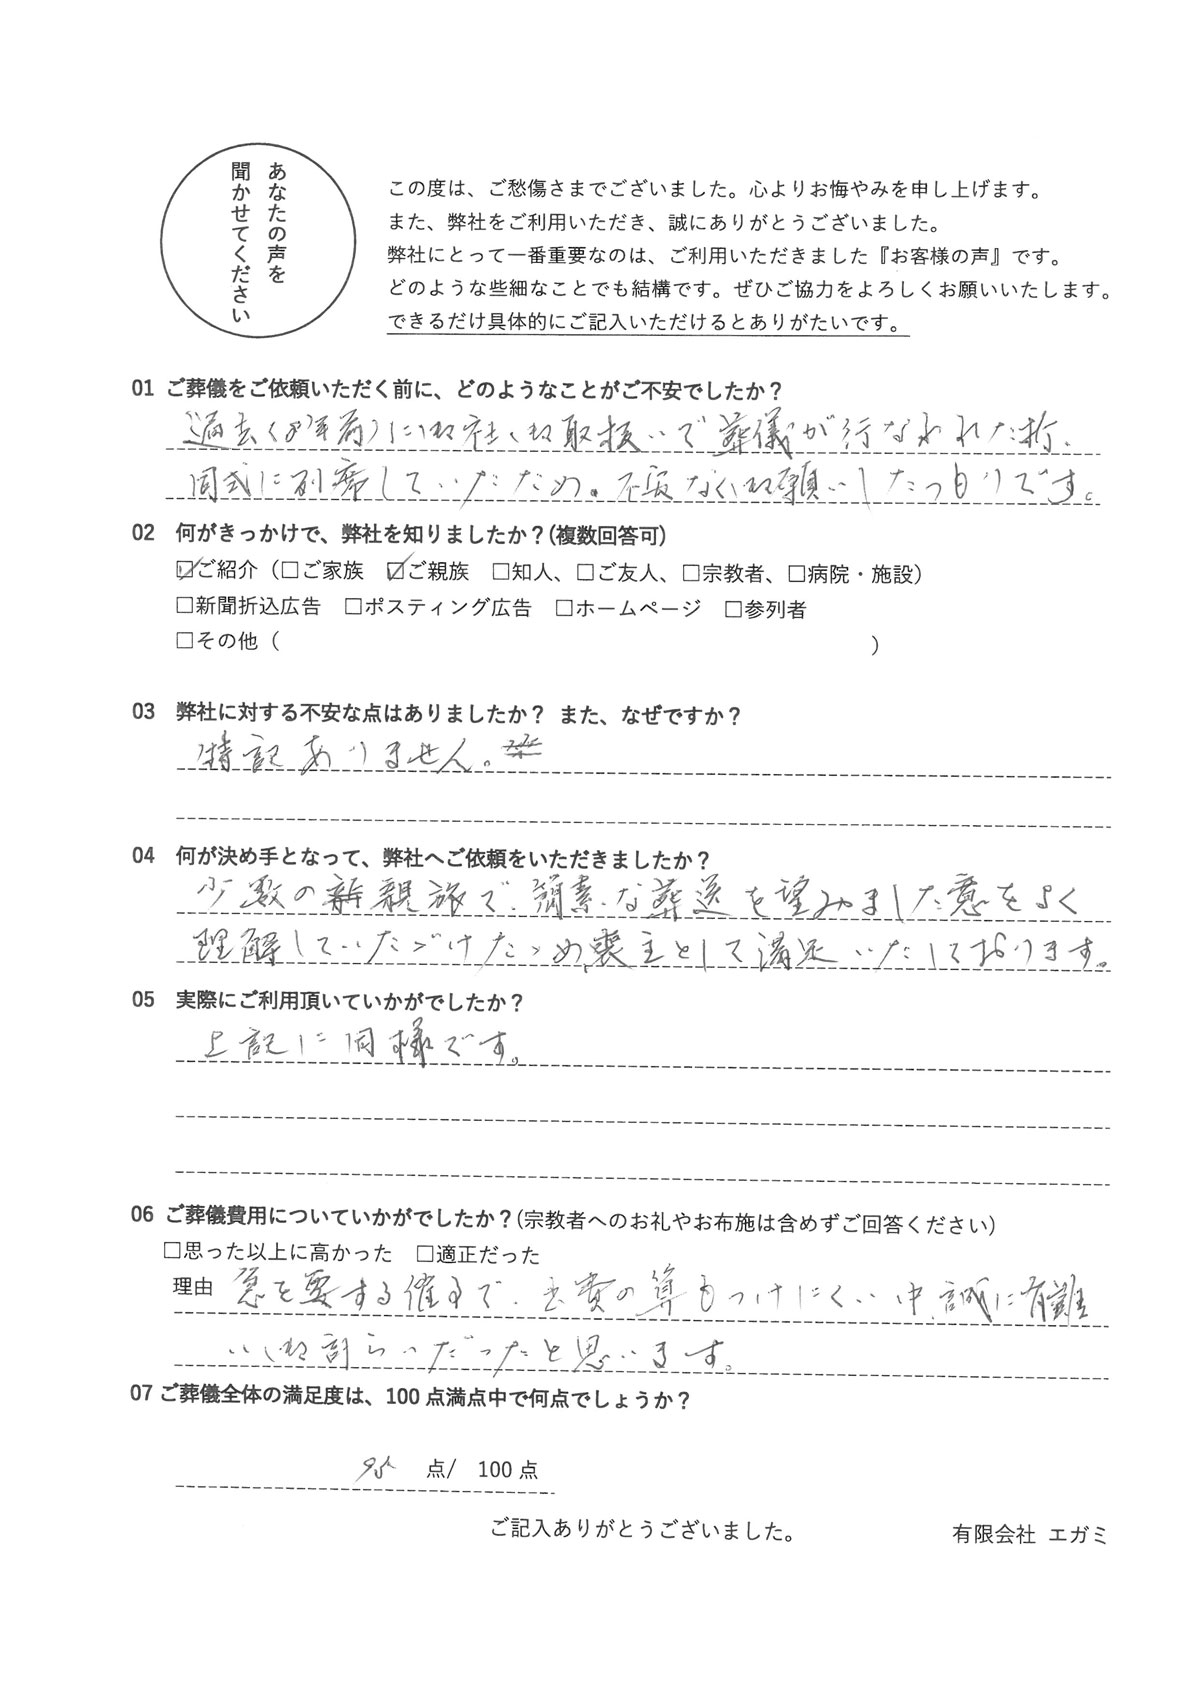 あなたの声を
聞かせてください
この度は、ご愁傷さまでございました。心よりお悔やみを申し上げます。
また、弊社をご利用いただき、誠にありがとうございました。
弊社にとって一番重要なのは、ご利用いただきました『お客様の声』です。
どのような些細なことでも結構です。ぜひご協力をよろしくお願いいたします。
できるだけ具体的にご記入いただけるとありがたいです。
01 ご葬儀をご依頼いただく前に、どのようなことがご不安でしたか？
過去(8年前)に御社御取扱いで葬儀が行なわれた折、
同式に列席していたため。不安なく御願いしたつもりです。
02 何がきっかけで、弊社を知りましたか？(複数回答可)
☑ご紹介（□ご家族 ☑ご親族 □知人、□ご友人、□宗教者、□病院・施設）
□新聞折込広告 □ポスティング広告 □ホームページ □参列者
□その他（ ）
03 弊社に対する不安な点はありましたか？ また、なぜですか？
特記ありません。
04 何が決め手となって、弊社へご依頼をいただきましたか？
少数の親族で、簡素な葬送を望みました意をよく
理解していただけたため、喪主として満足いたしております。
05 実際にご利用頂いていかがでしたか？
上記に同様です。
06 ご葬儀費用についていかがでしたか？(宗教者へのお礼やお布施は含めずご回答ください)
□思った以上に高かった □適正だった
理由 急を要する催事で、出費の算もつけにくい中、誠に有難
い御計らいだったと思います。
07 ご葬儀全体の満足度は、100 点満点中で何点でしょうか？
点/ 100 点
ご記入ありがとうございました。
有限会社 エガミ